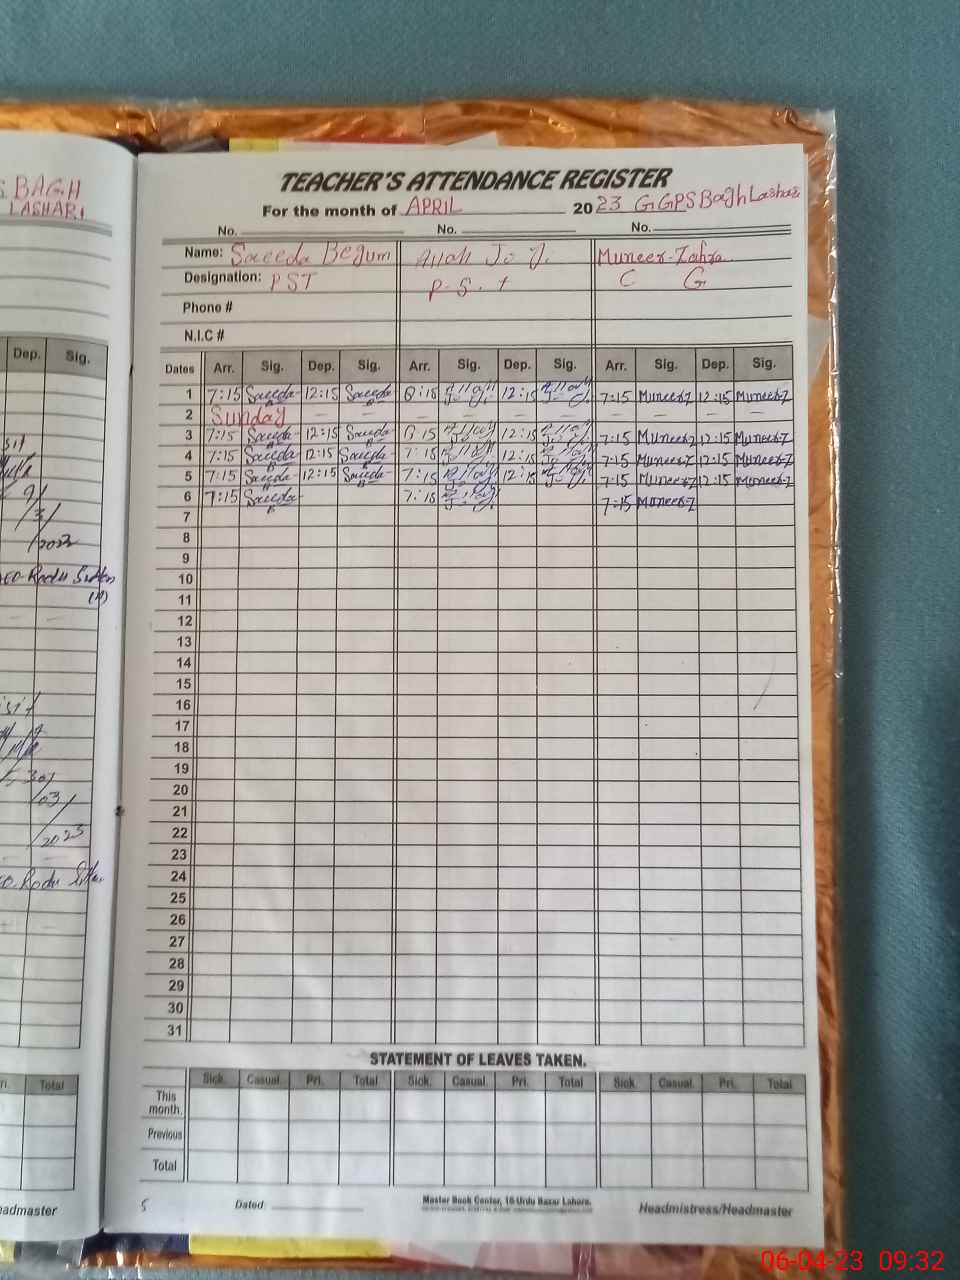 S BAGH
LASHARI
Dep. Sig.
sit
9/
/3/
/2023
EO-Rodu Sultan
(M)
30/
/03/
/2023
EO. Rodu
Total
eadmaster
TEACHER'S ATTENDANCE REGISTER
For the month of APRIL 2023 GGPS Bagh Lashari
No. No. No.
Name: Saeeda Begum Allah Jo J. Muneer-Zahra
Designation: PST P-S.t C G
Phone #
N.I.C #
Dates Arr. Sig. Dep. Sig. Arr. Sig. Dep. Sig. Arr. Sig. Dep. Sig.
1 7:15 Saeeda B 12:15 Saeeda B 12:15 7:15 Muneer-Z 12:15 Muneer-Z
2 Sunday — — — — — — — — — —
3 7:15 Saeeda B 12:15 Saeeda B 12:15 7:15 Muneer-Z 12:15 Muneer-Z
4 7:15 Saeeda B 12:15 Saeeda B 7:15 12:15 7:15 Muneer-Z 12:15 Muneer-Z
5 7:15 Saeeda B 12:15 Saeeda B 7:15 12:15 7:15 Muneer-Z 12:15 Muneer-Z
6 7:15 Saeeda B 7:15 7:15 Muneer-Z
7
8
9
10
11
12
13
14
15
16
17
18
19
20
21
22
23
24
25
26
27
28
29
30
31
STATEMENT OF LEAVES TAKEN.
Sick. Casual. Pri. Total Sick. Casual. Pri. Total Sick. Casual. Pri. Total
This month.
Previous
Total
5 Dated Master Book Center, 16-Urdu Bazar Lahore. Headmistress/Headmaster
06-04-23 09:32